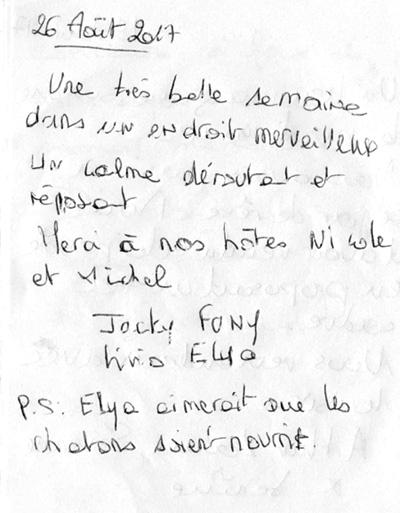 26 Août 2017
Une très belle semaine
dans un endroit merveilleux
un calme déroutat et
réposat
Merci à nos hôtes Nicole
et Michel
Jocky FONY
Livio Elya
P.S: Elya aimerait que les
chatons soient nourrit.